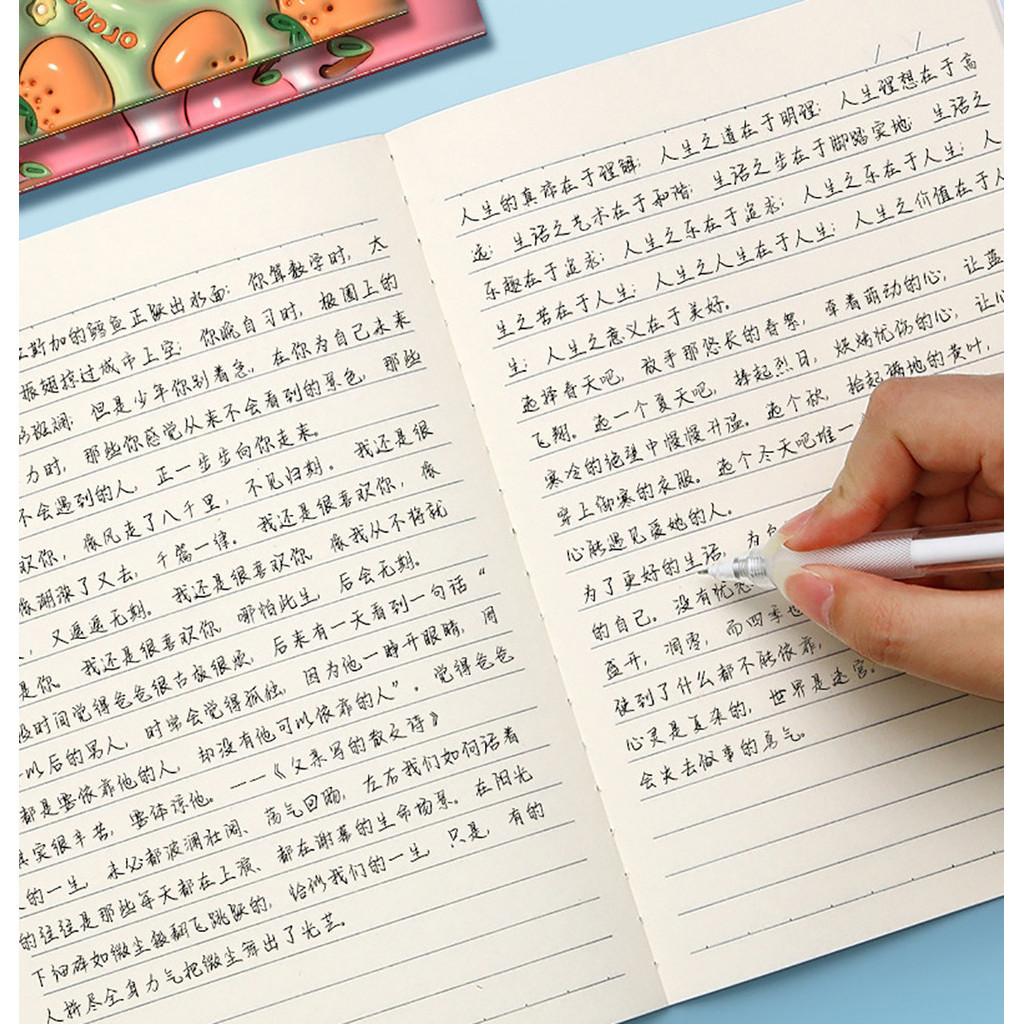 oran
斯加的鳕鱼正跃出水面；你算数学时，太
振翅掠过城市上空；你晚自习时，极圈上的
斑斓；但是少年你别着急，在你为自己未来
力时，那些你感觉从来不会看到的景色，那些
不会遇到的人，正一步步向你走来。
欢你，像风走了八千里，不见归期。我还是很
像潮涨了又去，千篇一律。我还是很喜欢你，像
，又遥遥无期。我还是很喜欢你，像我从不将就
是你。我还是很喜欢你，哪怕此生，后会无期。
段时间觉得爸爸很古板很烦，后来有一天看到一句话“
以后的男人，时常会觉得孤独，因为他一睁开眼睛，周
都是要依靠他的人，却没有他可以依靠的人”。觉得爸爸
其实很辛苦，要体谅他。——《父亲写的散文诗》
的一生，未必都波澜壮阔、荡气回肠，左右我们如何活着
的往往是那些每天都在上演、都在谢幕的生命场景。在阳光
下细碎如微尘般翻飞跳跃的，恰似我们的一生。只是，有的
人拼尽全身力气把微尘舞出了光芒。
/ /
人生的真谛在于理解；人生之道在于明理；人生理想在于高
远；生活之艺术在于和谐；生活之步在于脚踏实地；生活之
乐趣在于追求；人生之乐在于追求；人生之乐在于人生；人
生之苦在于人生；人生之人生在于人生；人生之价值在于人
生；人生之意义在于美好。
选择春天吧，放手那悠长的眷祭，牵着萌动的心，让蓝
飞翔。选一个夏天吧，捧起烈日，烘烤忧伤的心，让心
寒冷的绝望中慢慢升温。选个秋，拾起满地的黄叶，
穿上御寒的衣服。选个冬天吧堆一
心能遇见爱她的人。
为了更好的生活，为自
的自己。没有忧愁
盛开，凋零，而四季也
使到了什么都不能依靠，
心灵是复杂的，世界是迷宫。
会失去做事的勇气。